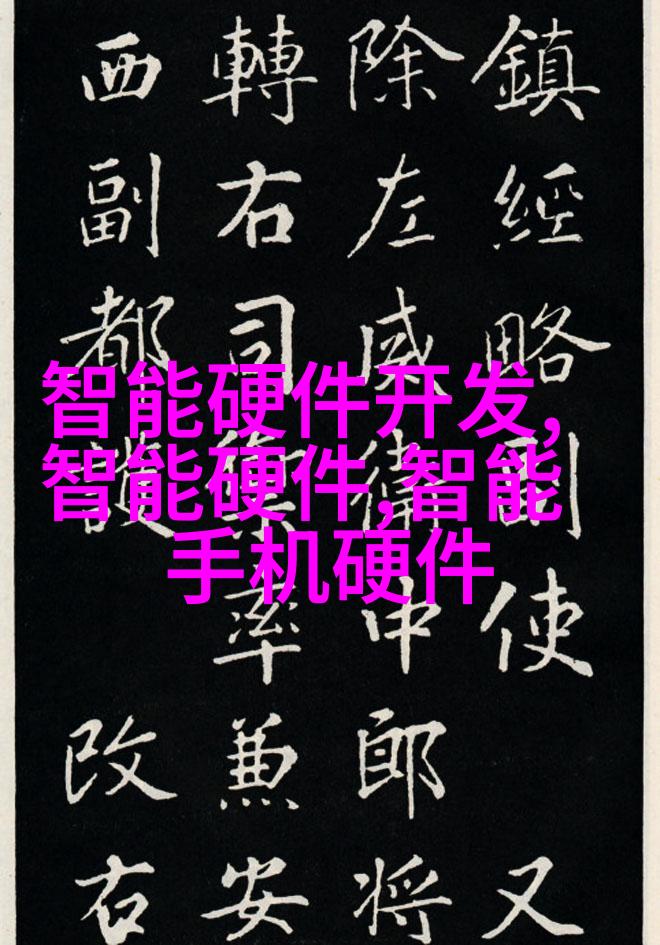 鎮經略副使 又
除左威衛中郎將
轉右司率兼安
西副都護 改右
智能硬件开发,
智能硬件,智能
手机硬件